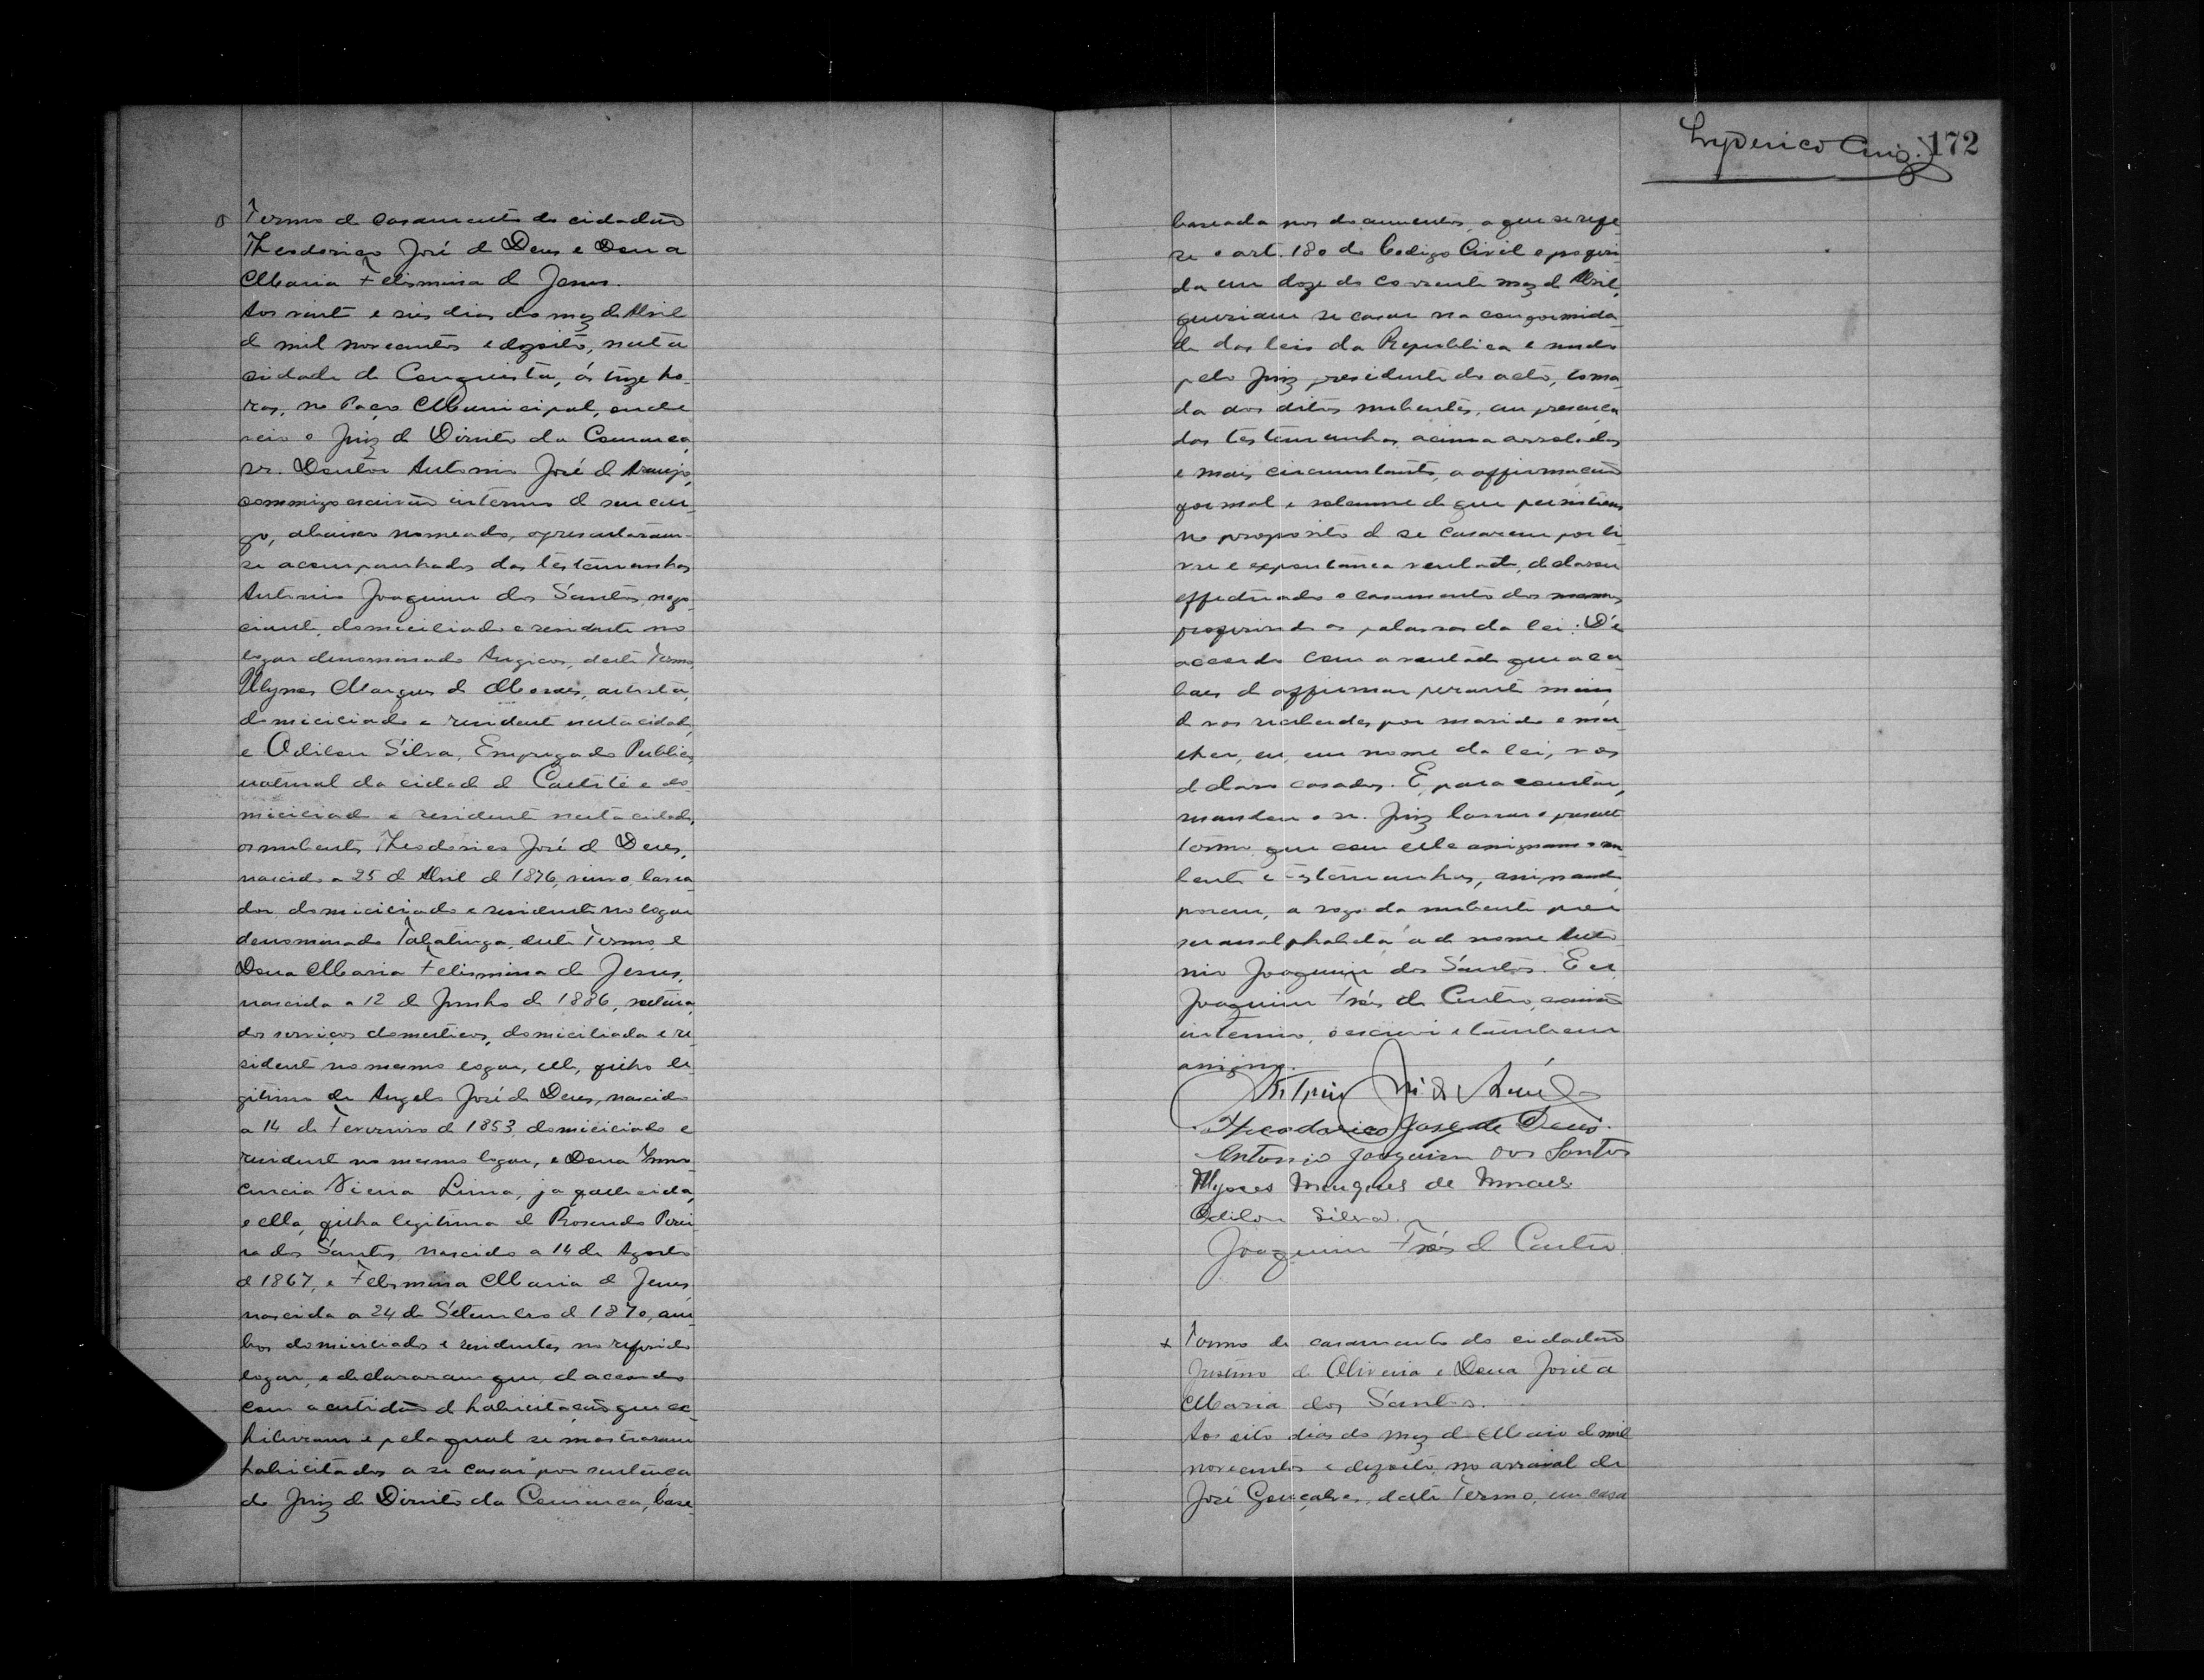 Termo de casamento do cidadão
Theodorico José de Deus e Dona
Maria Felismina de Jesus.
Aos vinte e seis dias do mez de Abril
de mil novecentos e dezoito, nesta
cidade de Conquista, ás treze ho-
ras, no Paço Municipal, onde
veio o Juiz de Direito da Comarca,
sr. Doutor Antonio José de Araujo,
commigo escrivão interino de seu car-
go, abaixo nomeado, apresentaram-
se acompanhados das testemunhas
Antonio Joaquim dos Santos, nego-
ciante, domiciliado e residente no
logar denominado Angicos, deste Termo,
Ulysses Marques de Moraes, artista,
domiciliado e residente nesta cidade,
e Odilon Silva, Empregado Publico,
natural da cidade de Caetité e do-
miciliado e residente nesta cidade,
os nubentes Theodorico José de Deus,
nascido a 25 de Abril de 1876, viuvo, lavra-
dor, domiciliado e residente no logar
denominado Tabatinga, deste Termo, e
Dona Maria Felismina de Jesus,
nascida a 12 de Junho de 1886, solteira,
dos serviços domesticos, domiciliada e re-
sidente no mesmo logar, elle, filho le-
gitimo de Angelo José de Deus, nascido
a 14 de Fevereiro de 1853, domiciliado e
residente no mesmo logar, e Dona Inno-
cencia Vieira Lima, ja fallecida,
e ella, filha legitima de Rosendo Perei-
ra dos Santos, nascido a 14 de Agosto
de 1867, e Felismina Maria de Jesus,
nascida a 24 de Setembro de 1870, am-
bos domiciliados e residentes no referido
logar, e declararam que, de accordo
com a certidão de habilitação que ex-
hibiram e pela qual se mostraram
habilitados a se casar por sentença
do Juiz de Direito da Comarca, base-
Lyderico Cruz. 172
baseada nos documentos a que se refe-
re o art. 180 do Codigo Civil e proferi-
da em doze do corrente mez de Abril,
queriam se casar na conformida-
de das leis da Republica e sendo
pelo Juiz presidente do acto, toma-
da aos ditos nubentes, em presença
das testemunhas acima arroladas
e mais circumstantes, a affirmação
formal e solemne de que persistiam
no proposito de se casarem por li-
vre e expontanea vontade, declarou
effectuado o casamento dos mesmos
proferindo as palavras da lei: De
accordo com a vontade que aca-
baes de affirmar perante mim
de vos receberdes por marido e mu-
lher, eu, em nome da lei, vos
declaro casados. E, para constar,
mandou o sr. Juiz lavrar o presente
termo que com elle assignam o nu-
bente e testemunhas, assignando,
porem, a rogo da nubente por
ser analphabeta a de nome Anto-
nio Joaquim dos Santos. Eu
Joaquim Fróes de Castro, escrivão
interino, o escrevi e tambem
assigno.
Antonio José de Araujo
Theodorico Jose de Deus.
Antonio Joaquim dos Santos
Ulysses Marques de Moraes
Odilon Silva.
Joaquim Fróes de Castro.
x Termo de casamento do cidadão
Justino de Oliveira e Dona Jovita
Maria dos Santos.
Aos oito dias do mez de Maio de mil
novecentos e dezoito, no arraial de
José Gonçalves, deste Termo, em casa